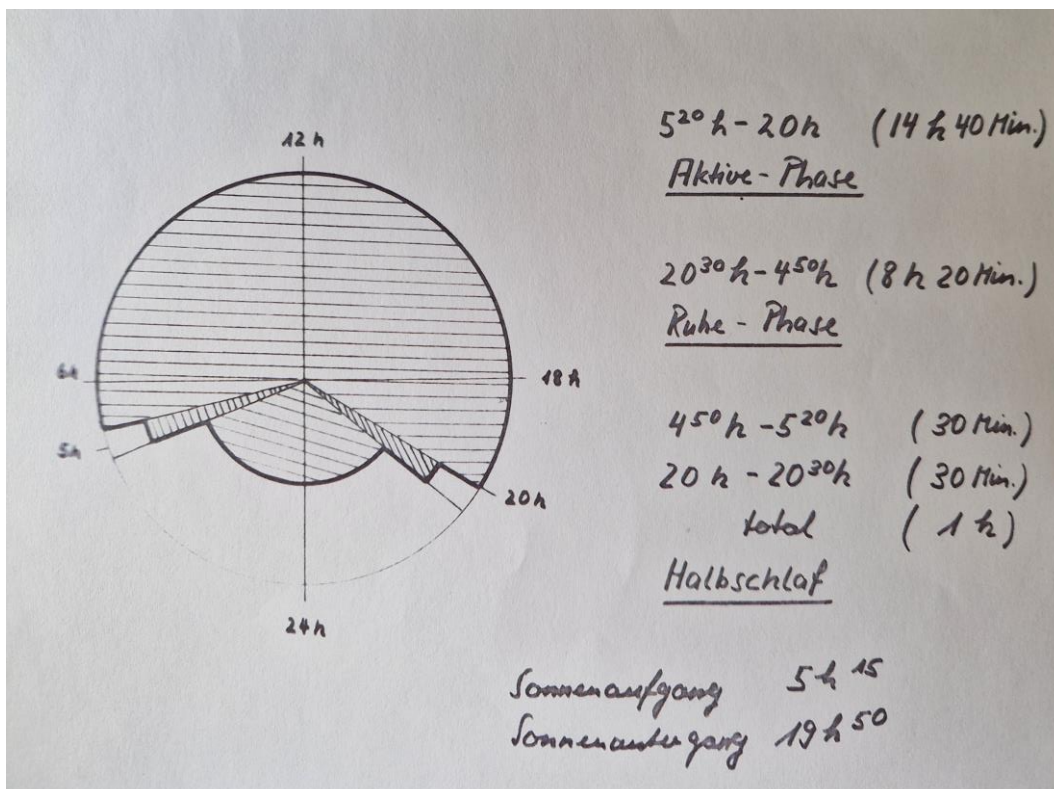 12 h
6h
18 h
5h
20 h
24 h
5²⁰ h - 20h (14 h 40 Min.)
Aktive - Phase
20³⁰ h - 4⁵⁰h (8 h 20 Min.)
Ruhe - Phase
4⁵⁰ h - 5²⁰h (30 Min.)
20 h - 20³⁰h (30 Min.)
total (1 h)
Halbschlaf
Sonnenaufgang 5 h ¹⁵
Sonnenuntergang 19 h ⁵⁰